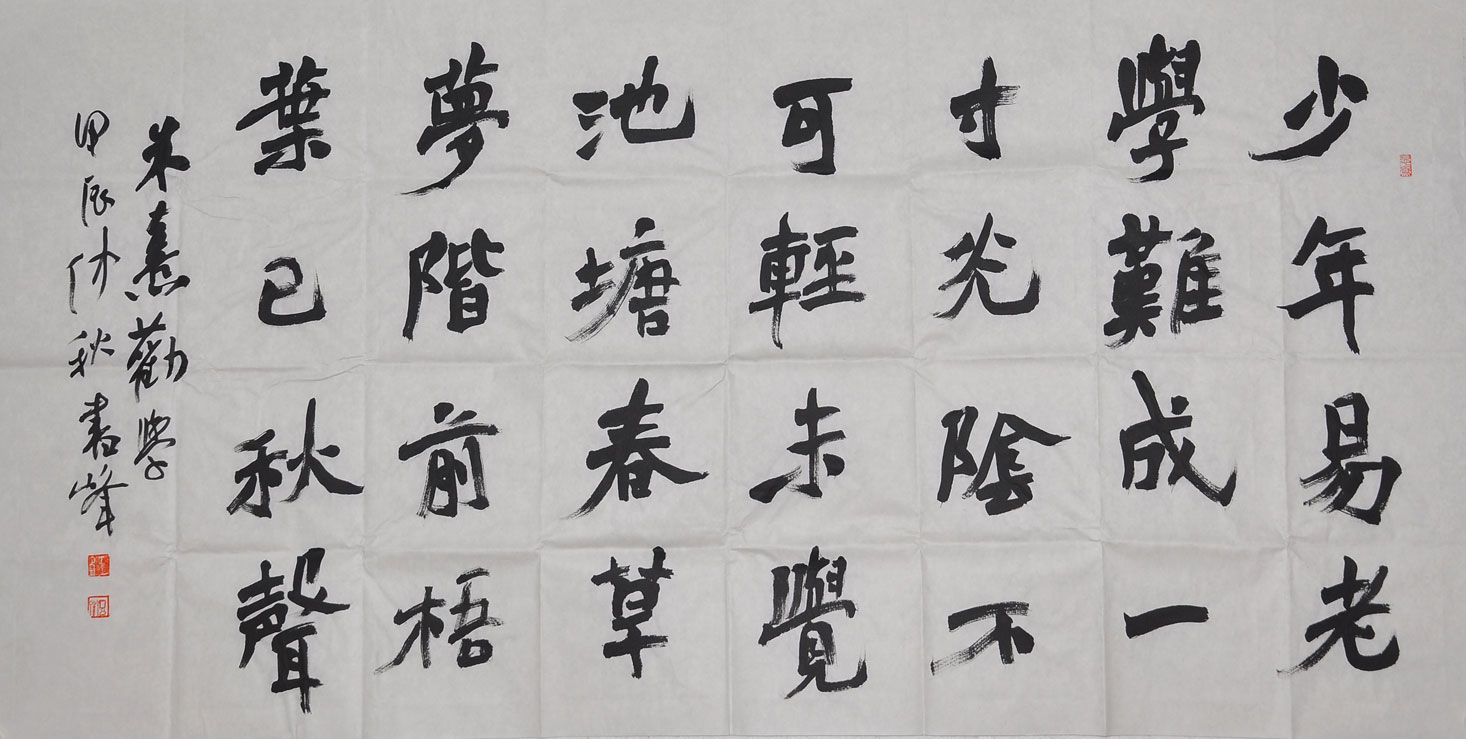 少年易老
學難成一
寸光陰不
可輕未覺
池塘春草
夢階前梧
葉已秋聲
朱熹勸學
甲辰仲秋書峰